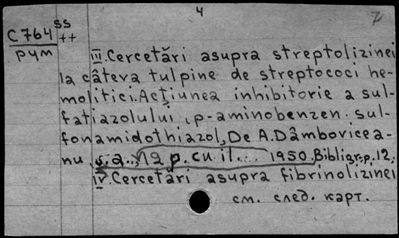 4
7
C764 SS
++
рум
III. Cercetări asupra streptolizinei
la câteva tulpine de streptococi he-
molitici. Acţiunea inhibitorie a sul-
fatiazolului, p-aminobenzen. sul-
fonamidothiazol, De A. Dâmbovicea-
nu ş. a., 12 p. cu il. ... 1950, Bibligr.: p. 12;
IV. Cercetări asupra fibrinolizinei
см. след. карт.